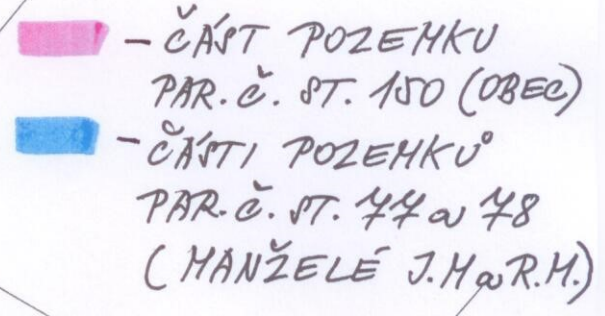 - ČÁST POZEMKU
PAR. Č. ST. 150 (OBEC)
- ČÁSTI POZEMKŮ
PAR. Č. ST. 77 a 78
(MANŽELÉ J.M a R.M.)